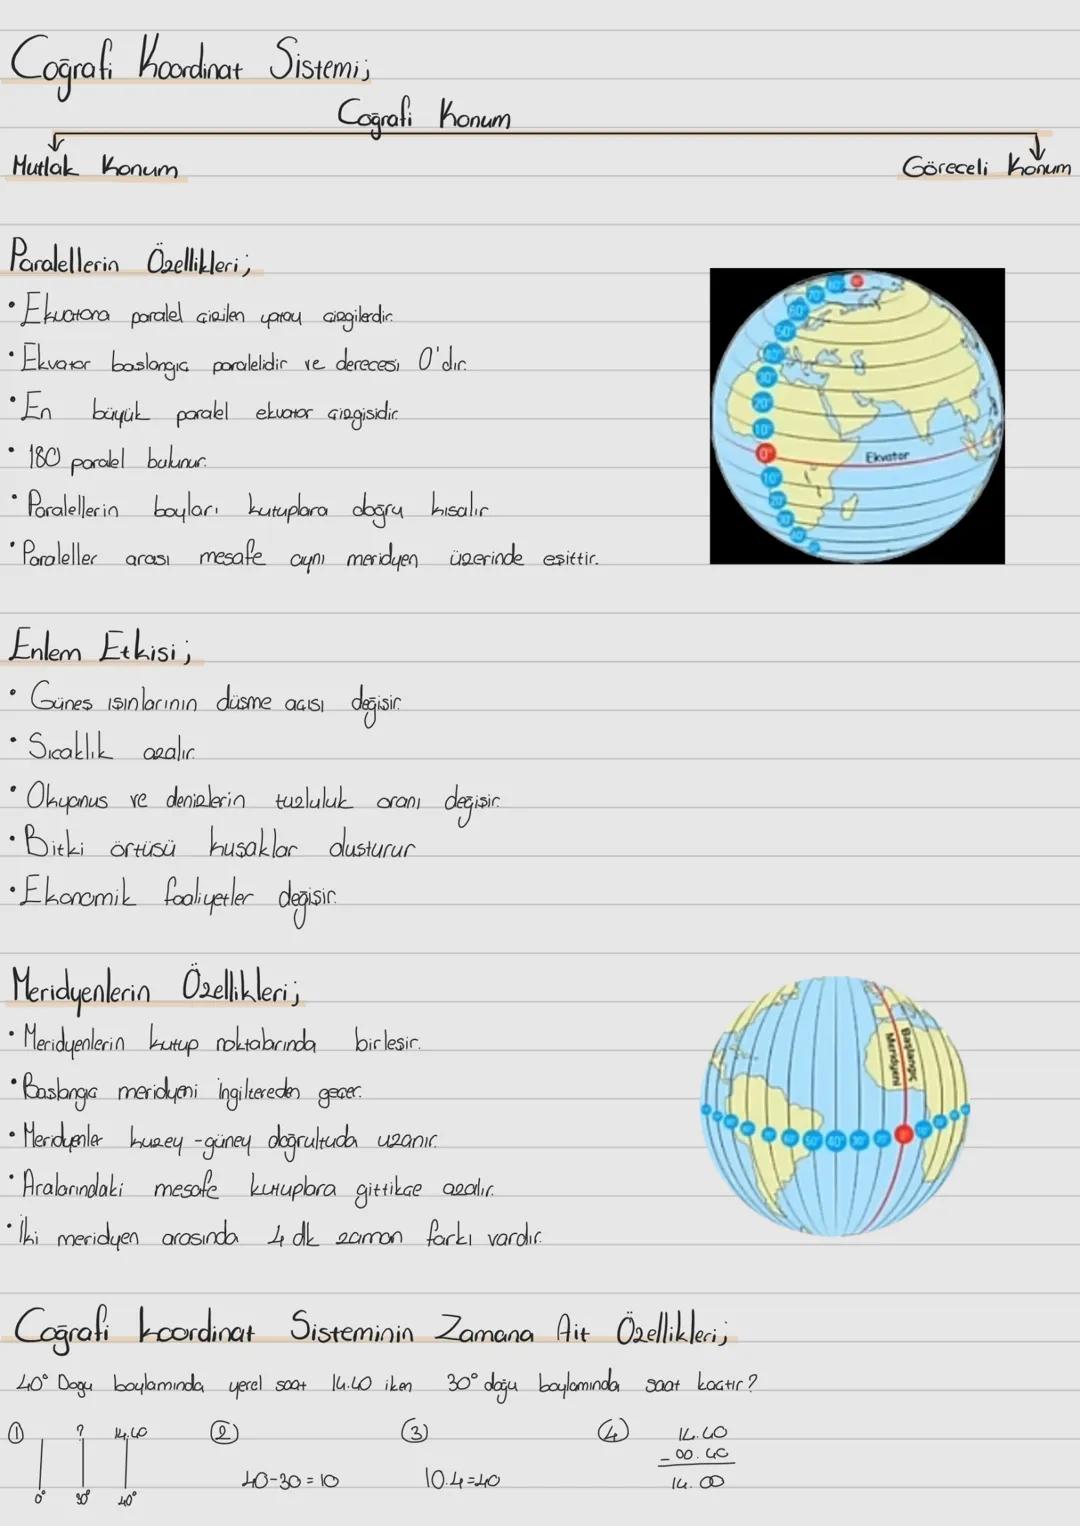 Coğrafi Koordinat Sistemi;
Coğrafi Konum
Mutlak Konum
Göreceli Konum
Paralellerin Özellikleri;
• Ekvatora paralel çizilen yatay çizgilerdir.
• Ekvator baslangıç paralelidir ve derecesi 0'dır.
• En büyük paralel ekvator çizgisidir.
• 180 paralel bulunur.
• Paralellerin boyları kutuplara doğru kısalır
• Paraleller arası mesafe aynı meridyen üzerinde eşittir.
80°
70°
60°
50°
40°
30°
20°
10°
0°
Ekvator
10°
20°
30°
40°
Enlem Etkisi;
• Günes ışınlarının düsme açısı değişir.
• Sıcaklık azalır.
• Okyanus ve denizlerin tuzluluk oranı değişir.
• Bitki örtüsü kuşaklar olusturur
• Ekonomik faaliyetler değişir.
Meridyenlerin Özellikleri;
• Meridyenlerin kutup noktalarında birleşir.
• Baslangıç meridyeni İngiltereden geçer.
• Meridyenler kuzey-güney doğrultuda uzanır.
• Aralarındaki mesafe kutuplara gittikçe azalır.
• İki meridyen arasında 4 dk zaman farkı vardır.
Başlangıç
Meridyeni
60° 50° 40° 30° 20° 0° 10°
Coğrafi koordinat Sisteminin Zamana Ait Özellikleri;
40° Dogu boylamında yerel saat 14.40 iken 30° doğu boylamında saat kaçtır?
① ? 14.40
0° 30° 40°
②
40-30=10
③
10.4=40
④ 14.40
- 00.40
14.00